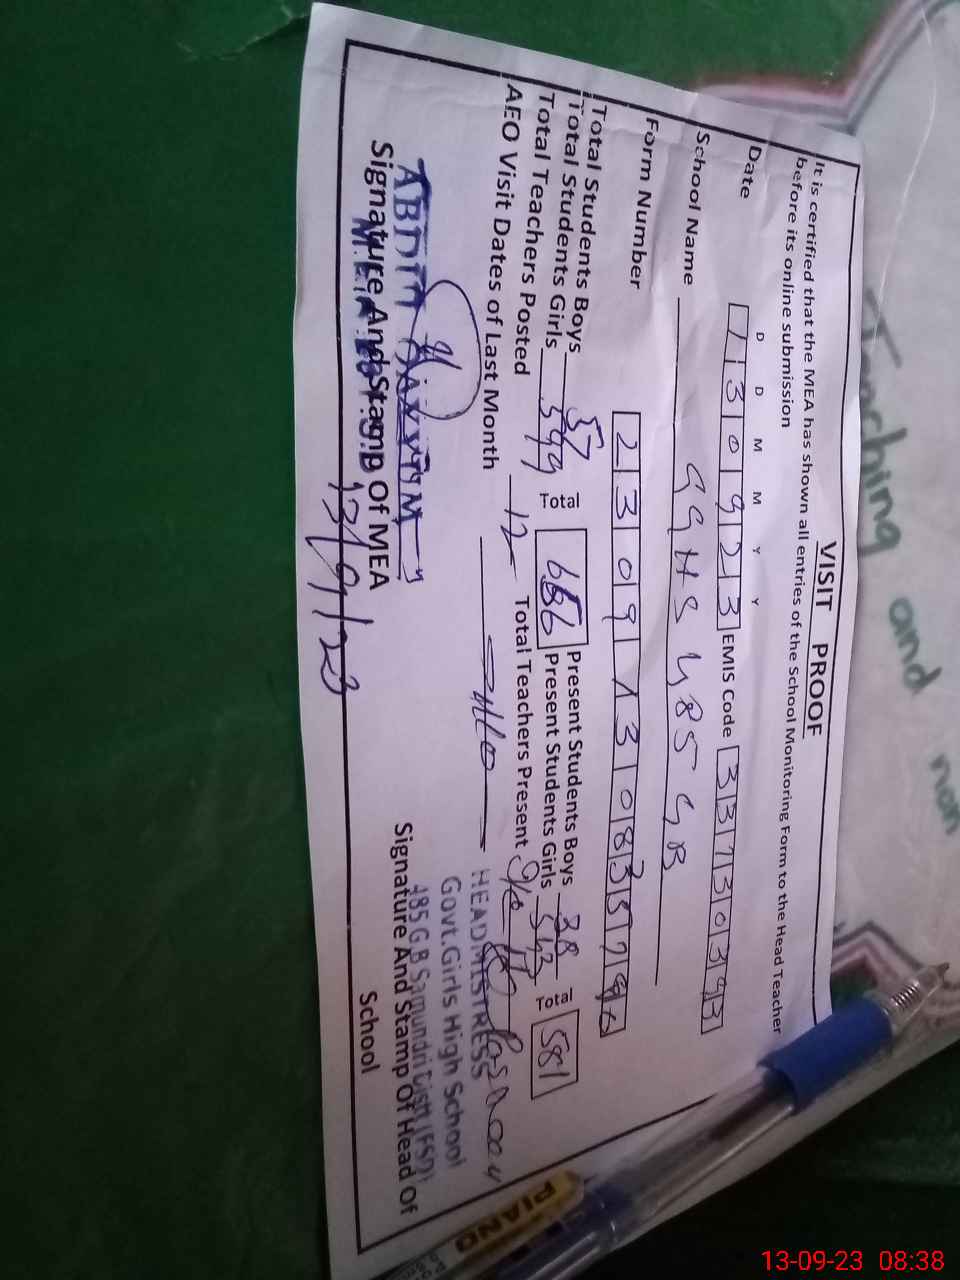 Teaching and non
VISIT PROOF
It is certified that the MEA has shown all entries of the School Monitoring Form to the Head Teacher
before its online submission
D D M M Y Y
Date 130923 EMIS Code 33130393
School Name GGHS 485 GB
Form Number
Total Students Boys 57 Present Students Boys 38
Total Students Girls 599 Total 656 Present Students Girls 543 Total 581
Total Teachers Posted 12 Total Teachers Present
AEO Visit Dates of Last Month
HEADMISTRESS
Govt.Girls High School
485 G.B Samundri Distt (FSD)
Signature And Stamp Of MEA
Signature And Stamp Of Head Of
School
13/9/23
PIANO
13-09-23 08:38